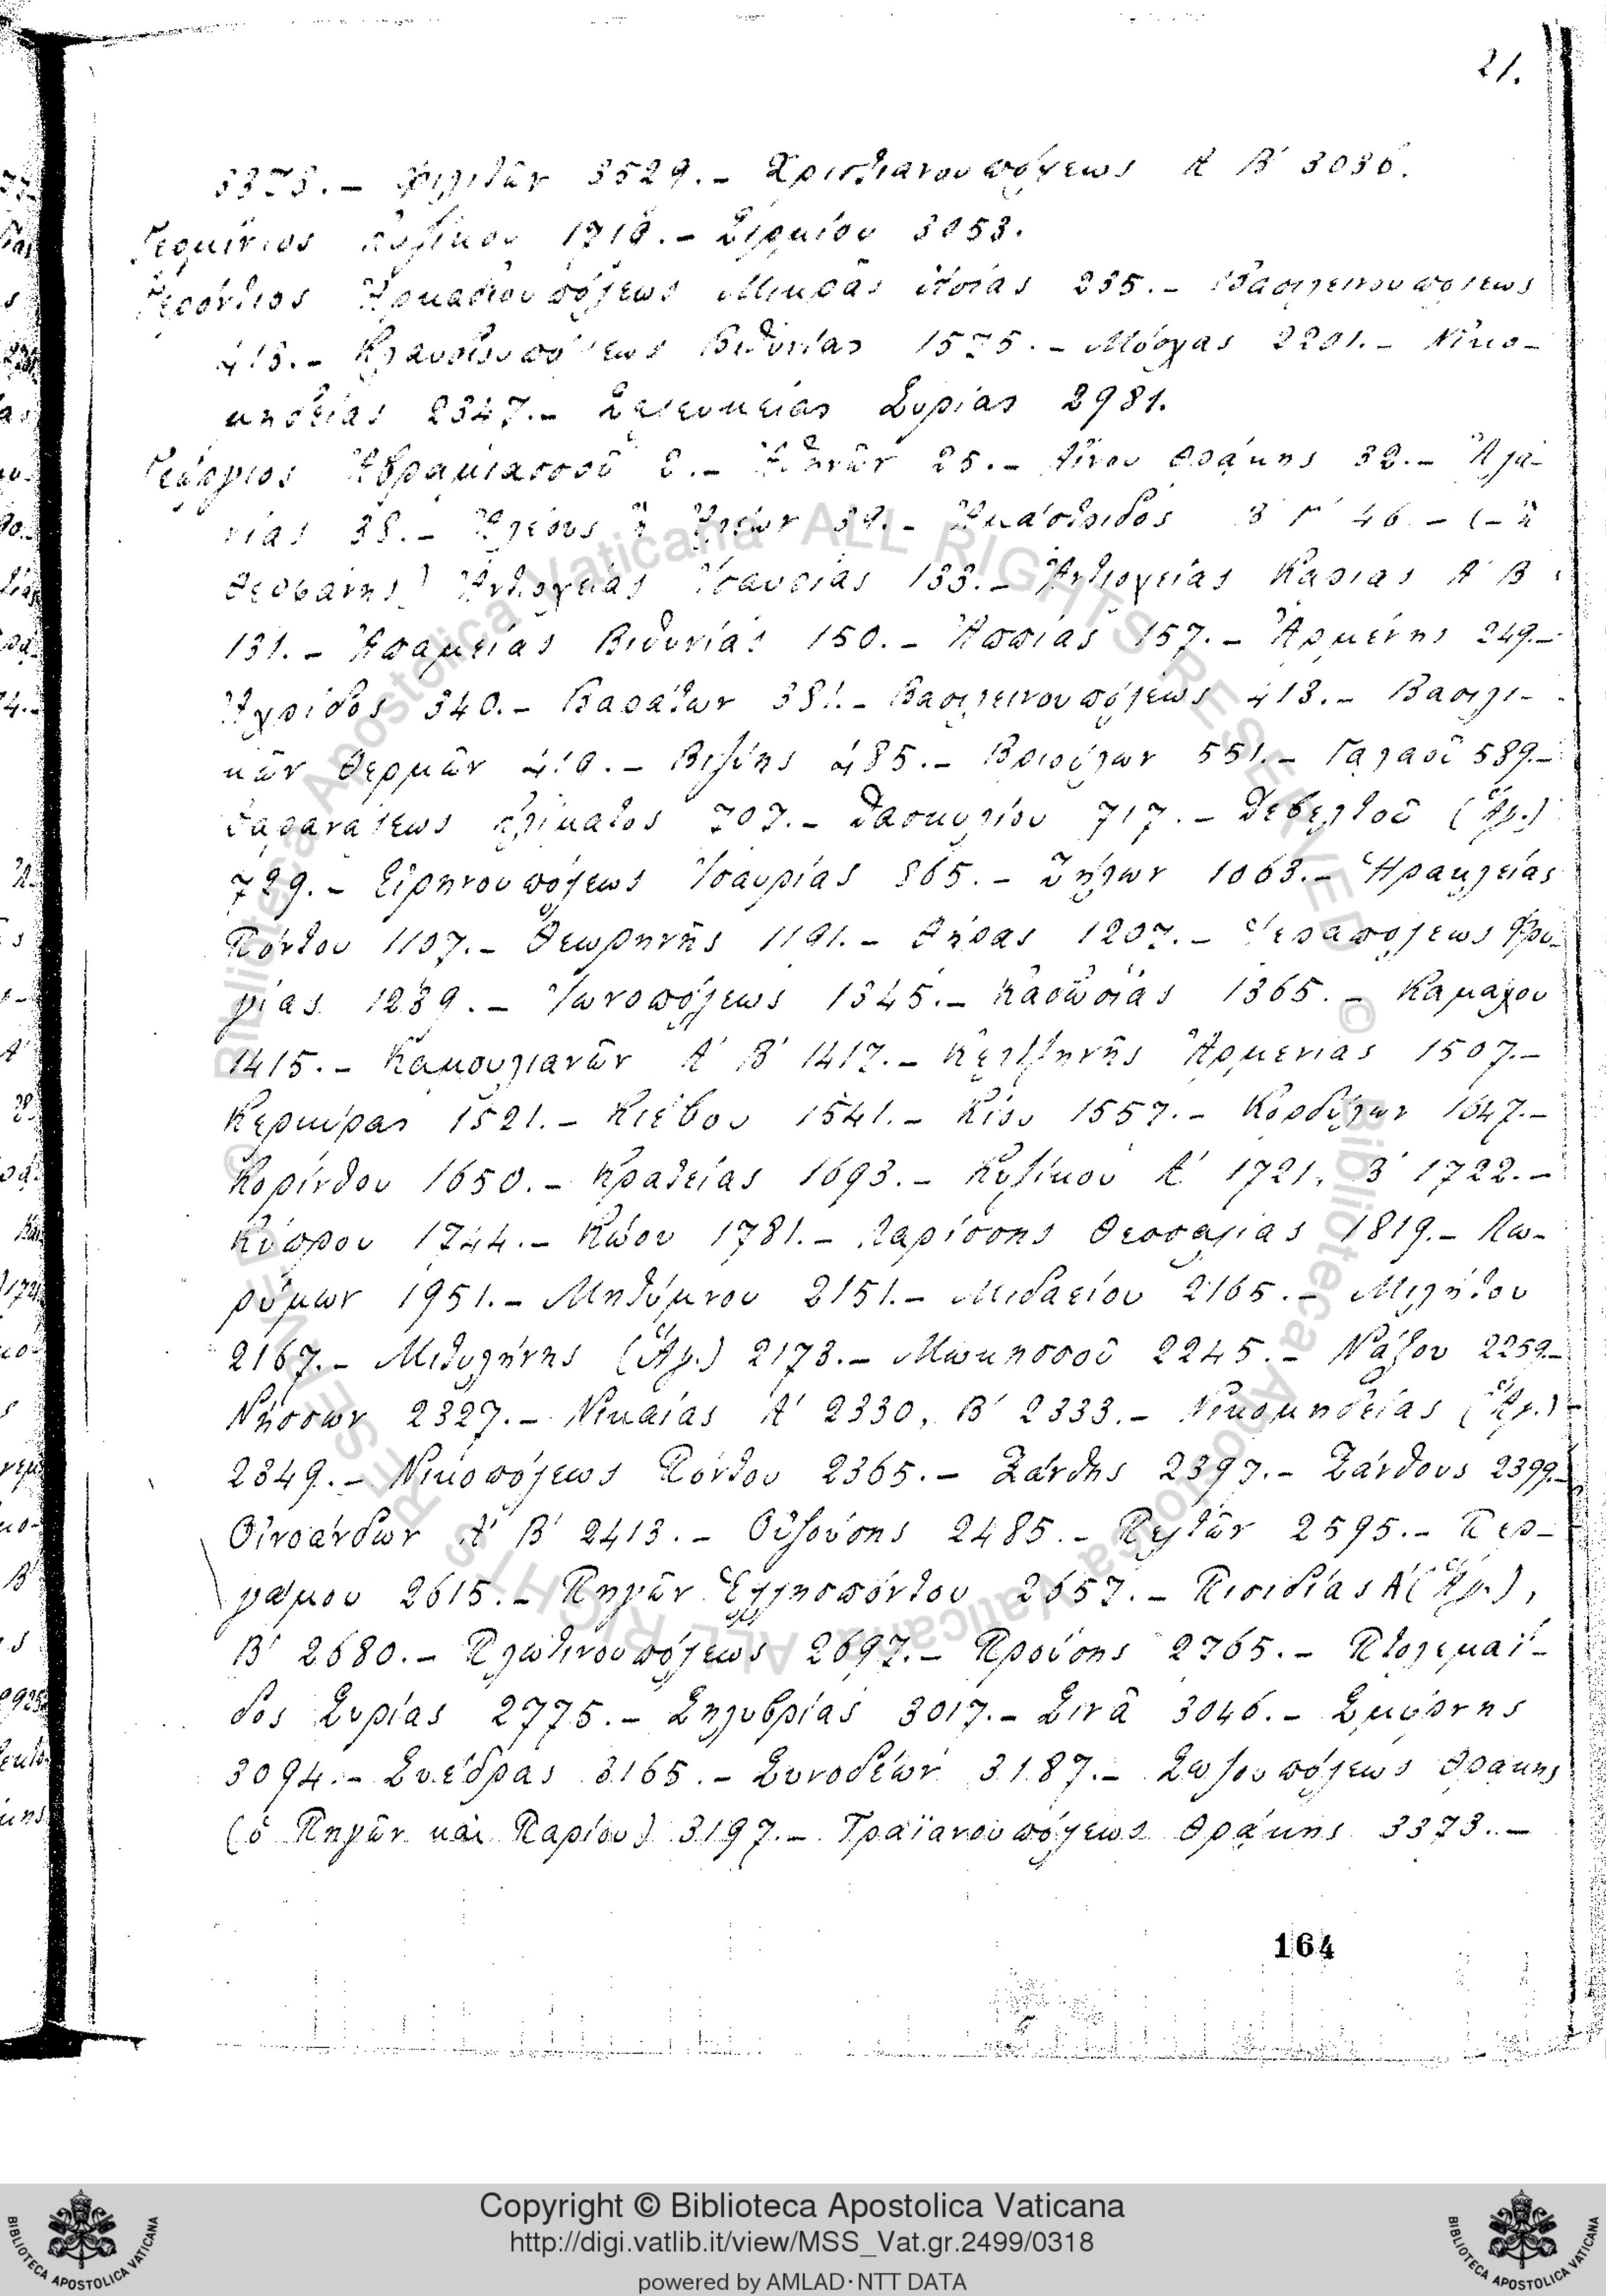 21.
3373.- Φιλιτῶν 3529.- Χριστιανουπόλεως Α Β΄ 3036.
Γερμίνιος Κυζίκου 1710.- Σιρμίου 3053.
Γερόντιος Ἀρκαδιουπόλεως Μικρᾶς Ἀσίας 235.- Βασιλεινουπόλεως
413.- Κλαυδιουπόλεως Βιθυνίας 1575.- 2201.- Νικο-
μηδείας 2347.- Σελευκείας Συρίας 2981.
Γεώργιος Ἀβραμιασσοῦ 2.- Ἀθηνῶν 25.- Αἴνου Θράκης 32.- Ἀλα-
νίας 38.- 39.- 46.- (-ἢ
Θεοφάνης) Ἀντιοχείας Ἰσαυρίας 133.- Ἀντιοχείας Καρίας Α΄ Β΄
131.- Ἀπαμείας Βιθυνίας 150.- Ἀππίας 157.- Ἀρμένης 249.-
Ἀχρίδος 340.- Βαράτων 381.- Βασιλεινουπόλεως 413.- Βασιλι-
κῶν Θερμῶν 419.- Βιζύης 485.- Βριούλων 551.- Γαλαοῦ 589.-
κλίματος 707.- Δασκυλίου 717.- Δεβελτοῦ (Ἅγ.)
729.- Εἰρηνουπόλεως Ἰσαυρίας 865.- Ζήλων 1063.- Ἡρακλείας
Πόντου 1107.- Θεωρηνῆς 1191.- Θήρας 1207.- Ἱεραπόλεως Φρυ-
γίας 1239.- Ἰωνοπόλεως 1345.- 1365.- Καμάχου
1415.- Καμουλιανῶν Α΄ Β΄ 1417.- Κελτζηνῆς Ἀρμενίας 1507.-
Κερκύρας 1521.- Κιέβου 1541.- Κίου 1557.- Κορδύλων 1647.-
Κορίνθου 1650.- Κρατείας 1693.- Κυζίκου Α΄ 1721, Β΄ 1722.-
Κύπρου 1744.- Κώου 1781.- Λαρίσσης Θεσσαλίας 1819.- Λω-
ρύμων 1951.- Μηθύμνου 2151.- Μιδαείου 2165.- Μιλήτου
2167.- Μιτυλήνης (Ἅγ.) 2173.- Μωκησσοῦ 2245.- Νάξου 2259.-
Νήσσων 2327.- Νικαίας Α΄ 2330, Β΄ 2333.- Νικομηδείας (Ἅγ.)-
2349.- Νικοπόλεως Πόντου 2365.- Ξάνθης 2397.- Ξάνθους 2399.-
Οἰνοάνδων Α΄ Β΄ 2413.- Οὐζούσης 2485.- Πελτῶν 2595.- Περ-
γάμου 2615.- Πηγῶν Ἑλλησπόντου 2657.- Πισιδίας Α΄(Ἅγ.),
Β΄ 2680.- Πλωτινουπόλεως 2697.- Προύσης 2765.- Πτολεμαΐ-
δος Συρίας 2775.- Σηλυβρίας 3017.- Σινᾶ 3046.- Σμύρνης
3094.- Συέδρας 3165.- Συνοδέων 3187.- Σωζουπόλεως Θράκης
(ὁ Πηγῶν καὶ Παρίου) 3197.- Τραϊανουπόλεως Θράκης 3373.-
164
Copyright © Biblioteca Apostolica Vaticana
http://digi.vatlib.it/view/MSS_Vat.gr.2499/0318
powered by AMLAD·NTT DATA